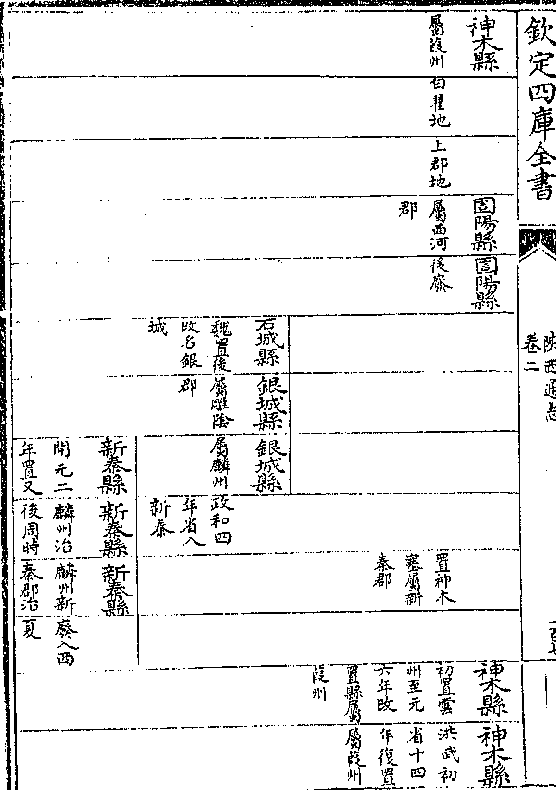 欽定四庫全書
陝西通志
卷二
神木縣
屬葭州
白翟地
上郡地
圁陽縣
屬西河
郡
圁陽縣
後廢
石城縣
魏置後
改名銀
城
銀城縣
屬雕陰
郡
銀城縣
屬麟州
新秦縣
開元二
年置又
政和四
年省入
新秦
新秦縣
麟州治
後周時
置神木
寨屬新
秦郡
新秦縣
麟州新
秦郡治
廢入西
夏
神木縣
初置雲
州至元
六年改
置縣屬
葭州
神木縣
洪武初
省十四
年復置
屬葭州